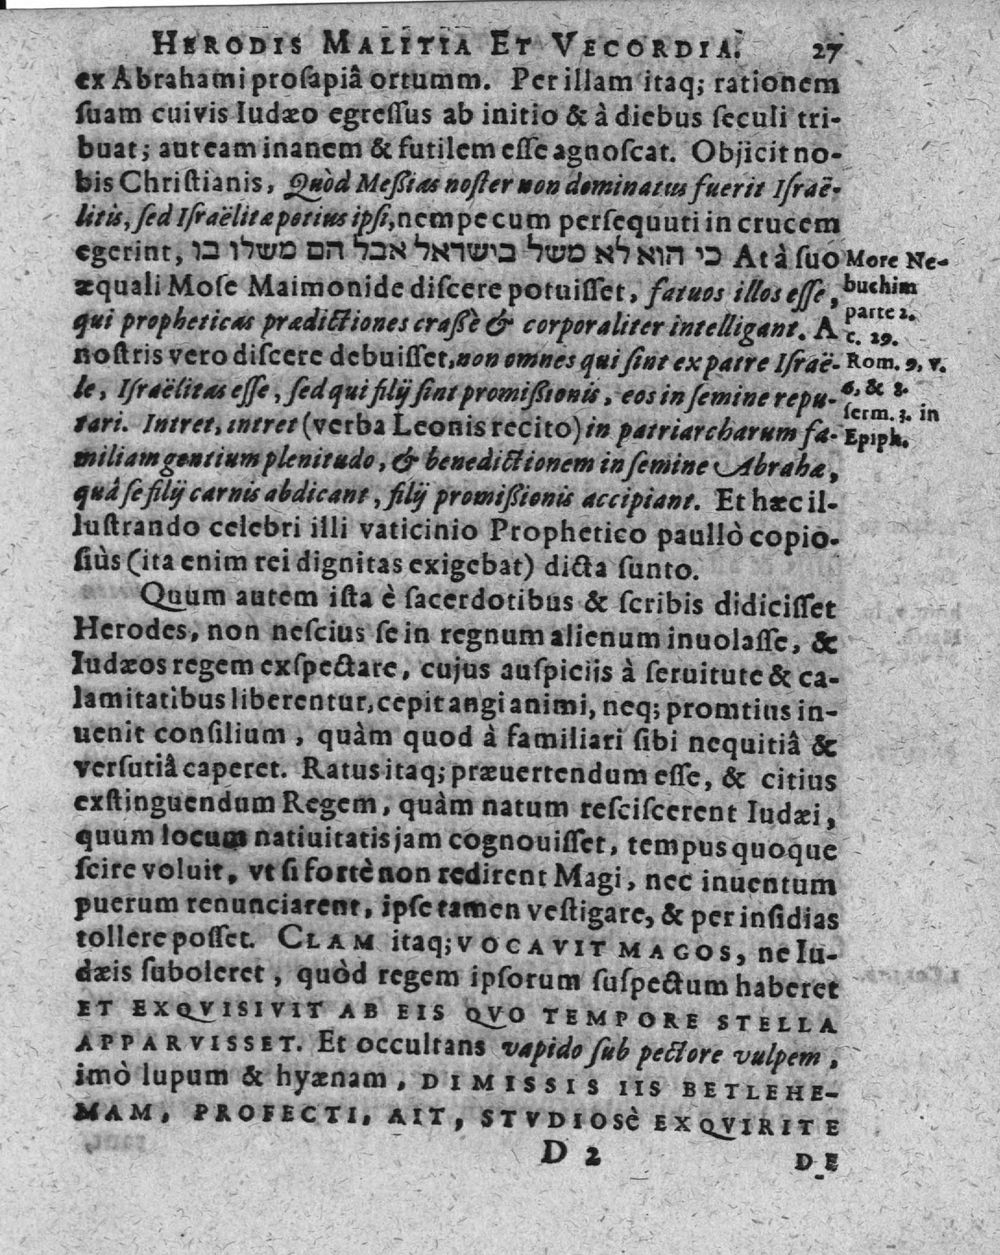 HERODIS MALITIA ET VECORDIA. 27
ex Abrahami prosapiâ ortumm. Per illam itaq; rationem
ſuam cuivis Iudæo egreſſus ab initio & à diebus ſeculi tri-
buat; aut eam inanem & futilem eſſe agnoſcat. Objicit no-
bis Chriſtianis, Quòd Meßias noſter non dominatus fuerit Iſraë-
litis, ſed Iſraëlitæ potius ipſi, nempe cum perſequuti in crucem
egerint, כי הוא לא משל בישראל אבל הם משלו בו At à ſuo
æquali Moſe Maimonide diſcere potuiſſet, fatuos illos eſſe,
qui propheticas prædictiones craßè & corporaliter intelligant. A
noſtris vero diſcere debuiſſet, non omnes qui ſint ex patre Iſraë-
le, Iſraëlitas eſſe, ſed qui filij ſint promißionis, eos in ſemine repu-
tari. Intret, intret (verba Leonis recito) in patriarcharum fa-
miliam gentium plenitudo, & benedictionem in ſemine Abrahæ,
quâ ſe filij carnis abdicant, filij promißionis accipiant. Et hæc il-
luſtrando celebri illi vaticinio Prophetico paullò copio-
ſiùs (ita enim rei dignitas exigebat) dicta ſunto.
Quum autem iſta è ſacerdotibus & ſcribis didiciſſet
Herodes, non neſcius ſe in regnum alienum inuolaſſe, &
Iudæos regem exſpectare, cujus auſpiciis à ſeruitute & ca-
lamitatibus liberentur, cepit angi animi, neq; promtius in-
uenit conſilium, quàm quod à familiari ſibi nequitiâ &
verſutiâ caperet. Ratus itaq; præuertendum eſſe, & citius
exſtinguendum Regem, quàm natum reſciſcerent Iudæi,
quum locum natiuitatis jam cognouiſſet, tempus quoque
ſcire voluit, vt ſi fortè non redirent Magi, nec inuentum
puerum renunciarent, ipſe tamen veſtigare, & per inſidias
tollere poſſet. CLAM itaq; VOCAVIT MAGOS, ne Iu-
dæis ſuboleret, quòd regem ipſorum ſuſpectum haberet
ET EXQVISIVIT AB EIS QVO TEMPORE STELLA
APPARVISSET. Et occultans vapido ſub pectore vulpem,
imò lupum & hyænam, DIMISSIS IIS BETLEHE-
MAM, PROFECTI, AIT, STVDIOSè EXQVIRITE
D 2 DE
More Ne-
buchim
parte 2.
c. 29.
Rom. 9. v.
6, & 8.
ſerm. 3. in
Epiph.